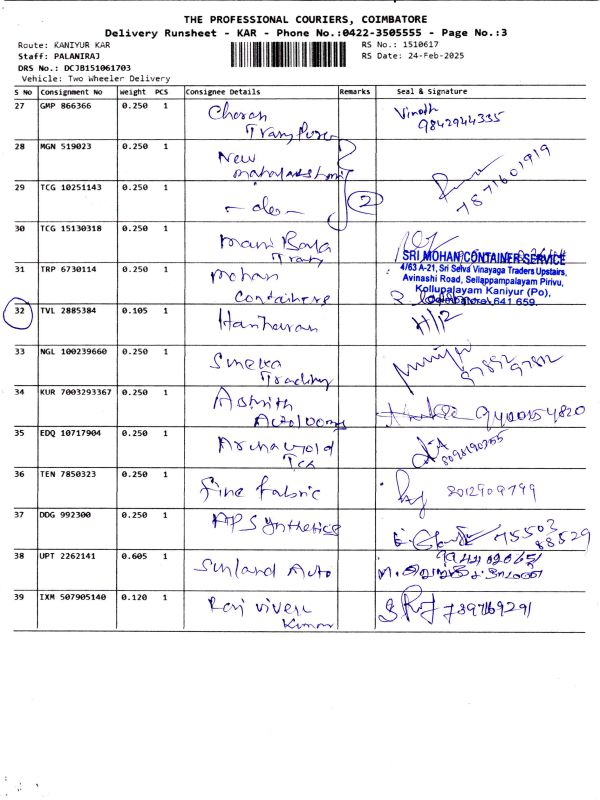 THE PROFESSIONAL COURIERS, COIMBATORE
Delivery Runsheet - KAR - Phone No.:0422-3505555 - Page No.:3
Route: KANIYUR KAR RS No.: 1510617
Staff: PALANIRAJ RS Date: 24-Feb-2025
DRS No.: DCJB151061703
Vehicle: Two Wheeler Delivery
S No Consignment No Weight PCS Consignee Details Remarks Seal & Signature
27 GMP 866366 0.250 1 Vinoth
9842944335
28 MGN 519023 0.250 1 New
29 TCG 10251143 0.250 1 - do - 2 7871601919
30 TCG 15130318 0.250 1 Mani
31 TRP 6730114 0.250 1 Mohan
Containers
SRI MOHAN CONTAINER SERVICE
4/63 A-21, Sri Selva Vinayaga Traders Upstairs,
Avinashi Road, Sellappampalayam Pirivu,
Kollupalayam Kaniyur (Po),
Coimbatore 641 659.
32 TVL 2885384 0.105 1 Hariharan
33 NGL 100239660 0.250 1 Sneka
Trading
34 KUR 7003293367 0.250 1
35 EDQ 10717904 0.250 1
36 TEN 7850323 0.250 1 Fine fabric 8012909799
37 DDG 992300 0.250 1 AP Synthetics 75503
88529
38 UPT 2262141 0.605 1 Sunland Auto
39 IXM 507905140 0.120 1 Raj Vivek
Kumar